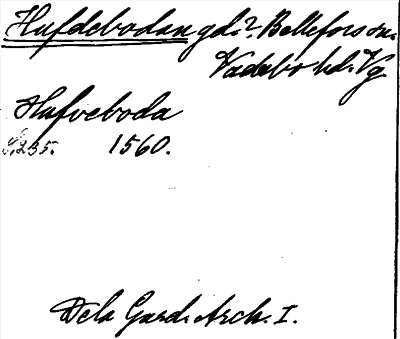 Hufdebodan gd.? Bellefors sn.
Vadsbo hd. Vg.
Hufveboda
S. 235. 1560.
Dela Gard. Arch. I.